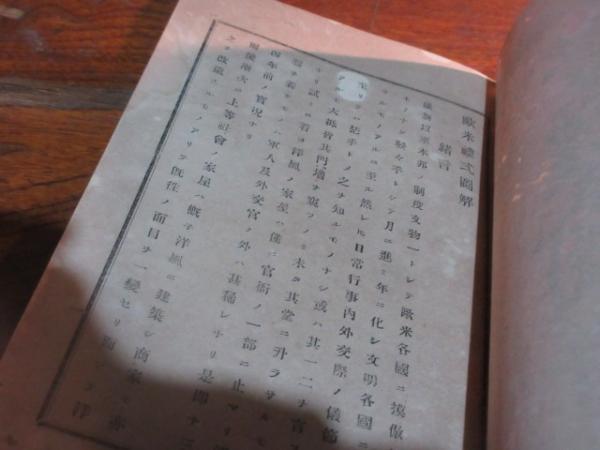 歐米禮式圖解
緒言
維新以來本邦ノ制度文物一トシテ歐米各國ニ摸倣
ナク駸々乎トシテ月ニ進ミ年ニ化シ文明各國ニ
モノアルニ至ル然レ𪜈日常行事内外交際ノ儀節
至リ 茫乎トノ之ヲ知ルモノナシ或ハ其一二ヲ言
大抵皆其門墻ヲ窺フノミ未タ其堂ニ升ラサルモ
ナリ試ミニ看ヨ洋風ノ家屋ハ僅ニ官衙ノ一部ニ止マリ
服ヲ着クモノハ軍人及外交官ノ外ハ甚稀レナリ是即チ
四年前ノ實況ナリ
爾後漸次ニ上等社會 家屋ハ概子洋風ニ建築シ商家モ亦
之ヲ改造スルモノアリテ既往ノ面目ヲ一變セリ 洋